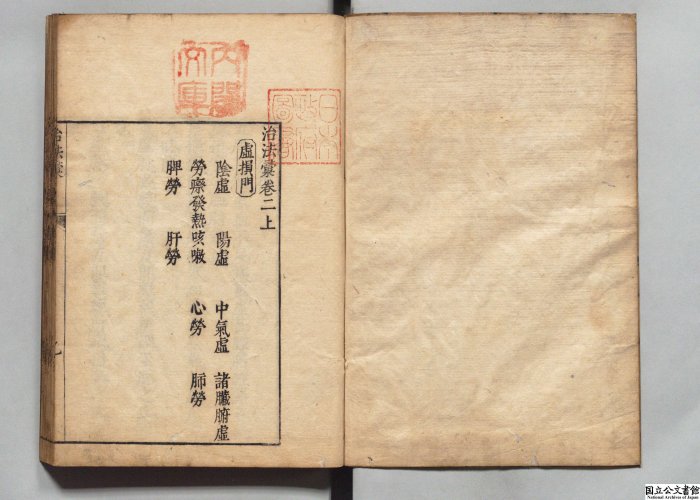 治法彙卷二上
虛損門
陰虛 陽虛 中氣虛 諸臟腑虛
勞瘵發熱咳嗽 心勞 肺勞
脾勞 肝勞
治法彙
內閣文庫
日本政府圖書
国立公文書館
National Archives of Japan